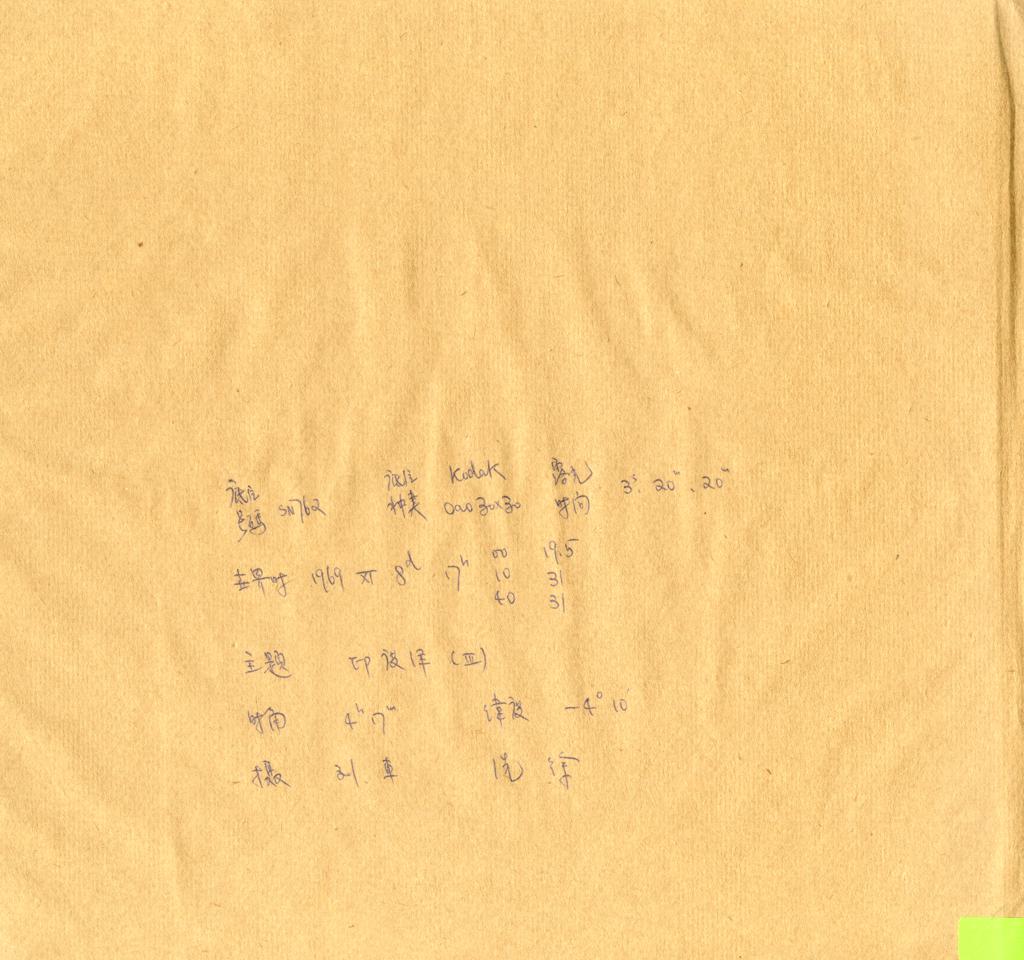 底片号码 SN762 底片种类 Kodak 0a0 30x30 露光时间 3ˢ. 20ᵐ. 20ᵐ
世界时 1969 XI 8ᵈ 17ʰ 00 19.5
10 31
40 31
主题 (III)
时角 4ʰ 17ᵐ 纬度 -4° 10′
摄 刘. 车 洗 徐